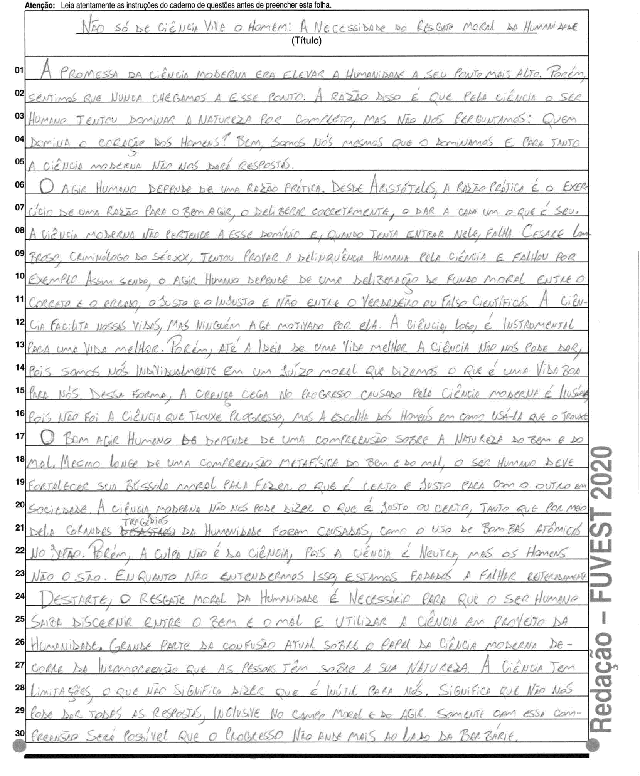 Atenção: Leia atentamente as instruções do caderno de questões antes de preencher esta folha.
NÃO SÓ DE CIÊNCIA VIVE O HOMEM: A NECESSIDADE DO RESGATE MORAL DA HUMANIDADE
(Título)
01 A PROMESSA DA CIÊNCIA MODERNA ERA ELEVAR A HUMANIDADE A SEU PONTO MAIS ALTO. PORÉM,
02 SENTIMOS QUE NUNCA CHEGAMOS A ESSE PONTO. A RAZÃO DISSO É QUE PELA CIÊNCIA O SER
03 HUMANO TENTOU DOMINAR A NATUREZA POR COMPLETO, MAS NÃO NOS PERGUNTAMOS: QUEM
04 DOMINA O CORAÇÃO DOS HOMENS? BEM, SOMOS NÓS MESMOS QUE O DOMINAMOS E PARA TANTO
05 A CIÊNCIA MODERNA NÃO NOS DARÁ RESPOSTAS.
06 O AGIR HUMANO DEPENDE DE UMA RAZÃO PRÁTICA. DESDE ARISTÓTELES, A RAZÃO PRÁTICA É O EXER
07 CÍCIO DE UMA RAZÃO PARA O BEM AGIR, O DELIBERAR CORRETAMENTE, O DAR A CADA UM O QUE É SEU.
08 A CIÊNCIA MODERNA NÃO PERTENCE A ESSE DOMÍNIO E, QUANDO TENTA ENTRAR NELE, FALHA. CESARE LOM
09 BROSO, CRIMINÓLOGO DO SÉC XIX, TENTOU PROVAR A DELINQUÊNCIA HUMANA PELA CIÊNCIA E FALHOU POR
10 EXEMPLO. ASSIM SENDO, O AGIR HUMANO DEPENDE DE UMA DELIBERAÇÃO DE FUNDO MORAL ENTRE O
11 CORRETO E O ERRADO, O JUSTO E O INJUSTO E NÃO ENTRE O VERDADEIRO OU FALSO CIENTÍFICOS. A CIÊN-
12 CIA FACILITA NOSSAS VIDAS, MAS NINGUÉM AGE MOTIVADO POR ELA. A CIÊNCIA, LOGO, É INSTRUMENTAL
13 PARA UMA VIDA MELHOR. PORÉM, ATÉ A IDEIA DE UMA VIDA MELHOR A CIÊNCIA NÃO NOS PODE DAR,
14 POIS SOMOS NÓS INDIVIDUALMENTE EM UM JUÍZO MORAL QUE DIZEMOS O QUE É UMA VIDA BOA
15 PARA NÓS. DESSA FORMA, A CRENÇA CEGA NO PROGRESSO CAUSADO PELA CIÊNCIA MODERNA É ILUSÓRIA
16 POIS NÃO FOI A CIÊNCIA QUE TROUXE PROGRESSO, MAS A ESCOLHA DOS HOMENS EM COMO USÁ-LA QUE O TROUXE
17 O BOM AGIR HUMANO DE DEPENDE DE UMA COMPREENSÃO SOBRE A NATUREZA DO BEM E DO
18 MAL. MESMO LONGE DE UMA COMPREENSÃO METAFÍSICA DO BEM E DO MAL, O SER HUMANO DEVE
19 FORTALECER SUA BÚSSOLA MORAL PARA FAZER O QUE É CERTO E JUSTO PARA COM O OUTRO EM
20 SOCIEDADE. A CIÊNCIA MODERNA NÃO NOS PODE DIZER O QUE É JUSTO OU CERTO, TANTO QUE POR MEIO
21 DELA GRANDES DESASTRES TRAGÉDIAS DA HUMANIDADE FORAM CAUSADAS, COMO O USO DE BOMBAS ATÔMICAS
22 NO JAPÃO. PORÉM, A CULPA NÃO É DA CIÊNCIA, POIS A CIÊNCIA É NEUTRA, MAS OS HOMENS
23 NÃO O SÃO. ENQUANTO NÃO ENTENDERMOS ISSO, ESTAMOS FADADOS A FALHAR REITERADAMENTE
24 DESTARTE, O RESGATE MORAL DA HUMANIDADE É NECESSÁRIO PARA QUE O SER HUMANO
25 SAIBA DISCERNIR ENTRE O BEM E O MAL E UTILIZAR A CIÊNCIA EM PROVEITO DA
26 HUMANIDADE. GRANDE PARTE DA CONFUSÃO ATUAL SOBRE O PAPEL DA CIÊNCIA MODERNA DE-
27 CORRE DA INCOMPREENSÃO QUE AS PESSOAS TÊM SOBRE A SUA NATUREZA. A CIÊNCIA TEM
28 LIMITAÇÕES, O QUE NÃO SIGNIFICA DIZER QUE É INÚTIL PARA NÓS. SIGNIFICA QUE NÃO NOS
29 PODE DAR TODAS AS RESPOSTAS, INCLUSIVE NO CAMPO MORAL E DO AGIR. SOMENTE COM ESSA COM-
30 PREENSÃO SERÁ POSSÍVEL QUE O PROGRESSO NÃO ANDE MAIS AO LADO DA BARBÁRIE.
Redação – FUVEST 2020